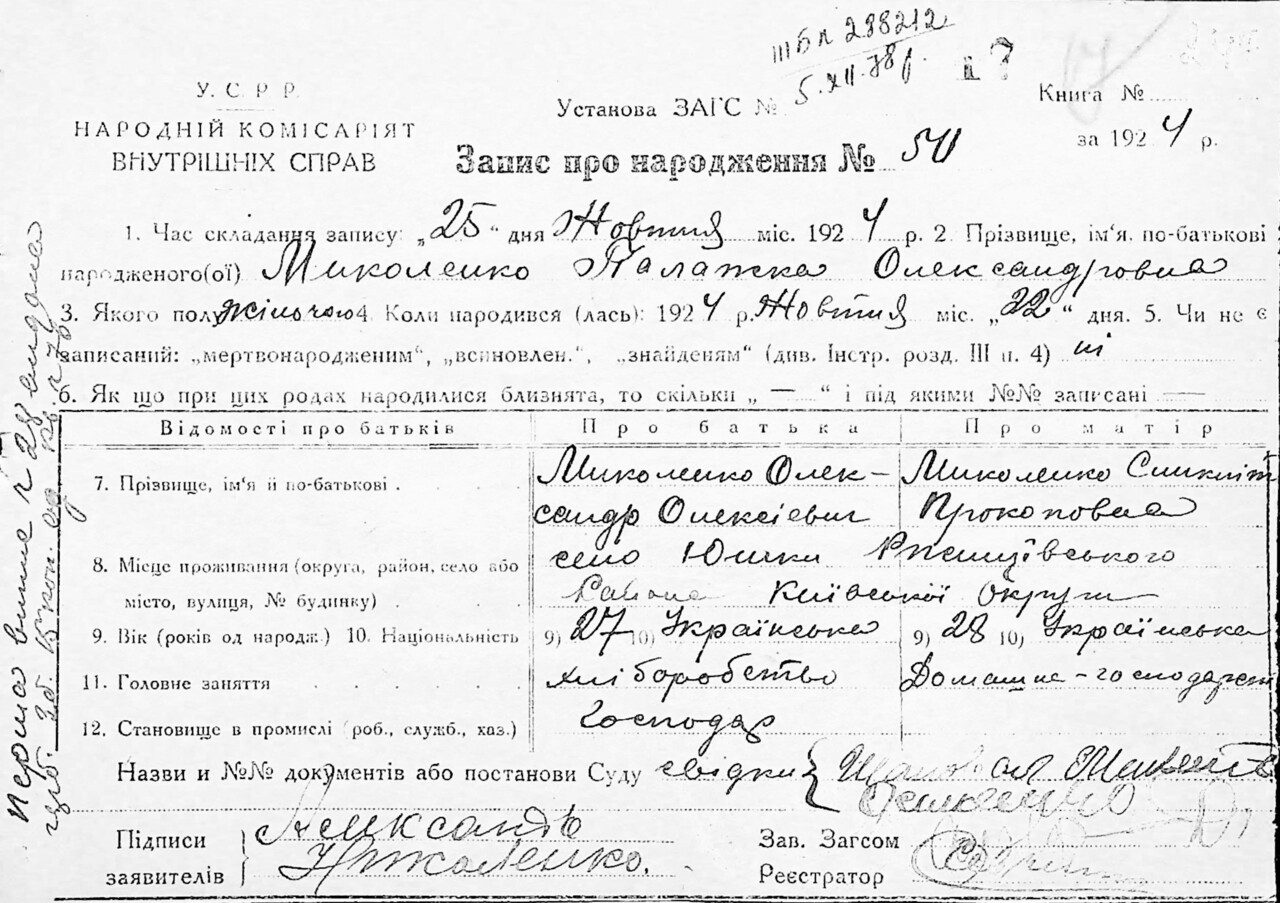 ІІІ БК 288212
5.XII.78 р.
У. С. Р. Р.
НАРОДНІЙ КОМІСАРІЯТ
ВНУТРІШНІХ СПРАВ
Установа ЗАГС №
Книга №
за 1924 р.
Запис про народження № 50
1. Час складання запису: „25“ дня Жовтня міс. 1924 р. 2. Прізвище, ім'я, по-батькові
народженого(ої) Миколенко Палажка Олександровна
3. Якого полу жіночого 4. Коли народився (лась): 1924 р. Жовтня міс. „22“ дня. 5. Чи не є
записаний: „мертвонародженим“, „всиновлен.“, „знайденям“ (див. Інстр. розд. III п. 4) ні
6. Як що при цих родах народилися близнята, то скільки „ — “ і під якими №№ записані —
Відомості про батьків Про батька Про матір
7. Прізвище, ім'я й по-батькові . Миколенко Олек- Миколенко
сандр Олексієвич Прокоповна
8. Місце проживання (округа, район, село або село Юшки Ржищівського
місто, вулиця, № будинку) . . Района Київської Округи
9. Вік (років од народж.) 10. Національність 9) 27 10) Українська 9) 28 10) Українська
11. Головне заняття . . . . . хліборобство Домашне-господарст
12. Становище в промислі (роб., служб., хаз.) Господар
Назви и №№ документів або постанови Суду свідки
Підписи
заявителів
Александр
Николенко.
Зав. Загсом
Реєстратор